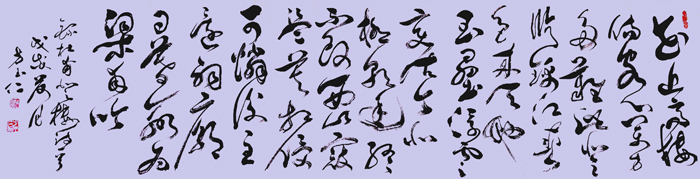 花近高樓
傷客心萬方
多難此登
臨錦江春
色來天地
玉壘浮雲
變古今北
極朝廷終
不改西山寇
盜莫相侵
可憐後主
還祠廟
日暮聊為
梁甫吟
錄杜甫登樓詩一首
戊戌夏月